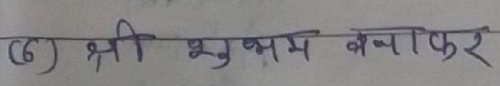 (6) श्री शुभम बेनाकर